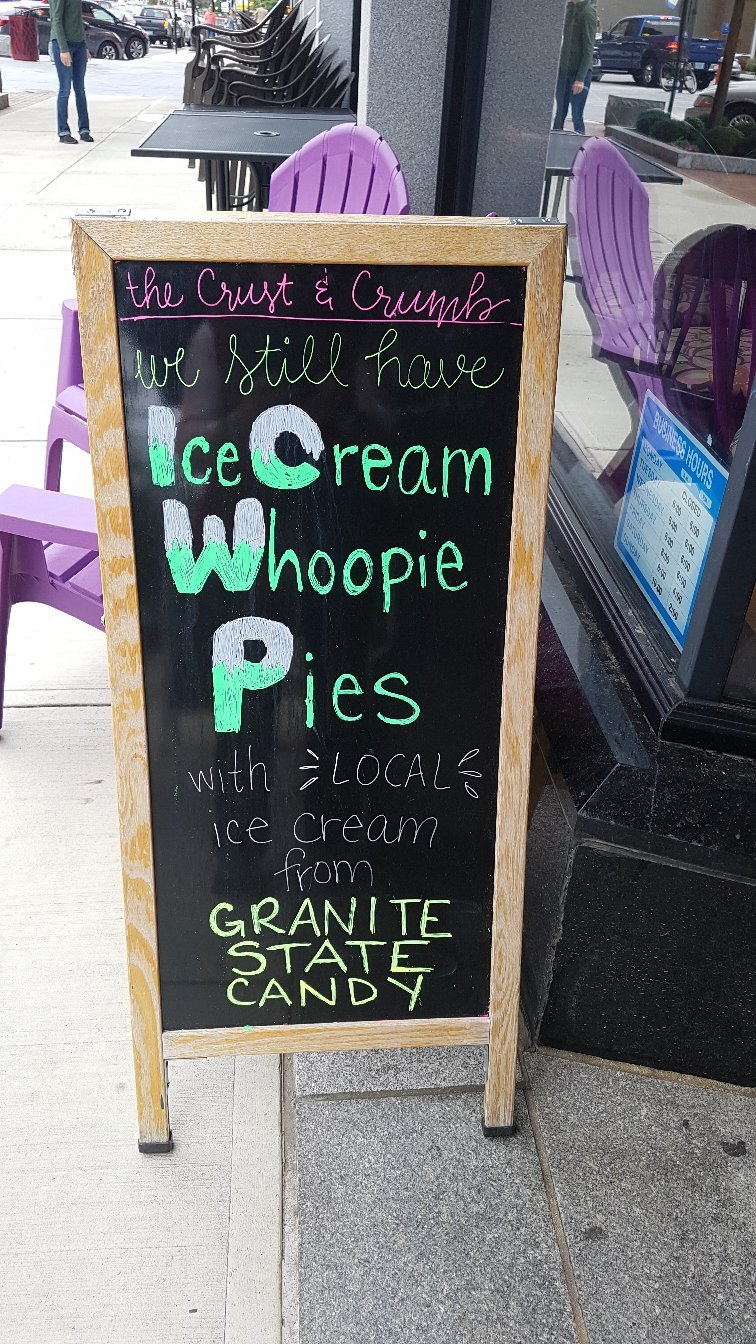 the Crust & Crumb
we still have
Ice Cream
Whoopie
Pies
with LOCAL
ice cream
from
GRANITE
STATE
CANDY
BUSINESS HOURS
CLOSED